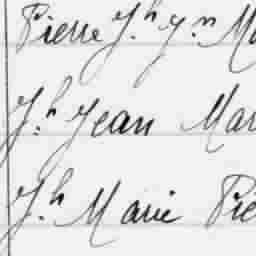 Pierre Jh Jn Ma
Jh Jean Mar
Jh Marie Pie